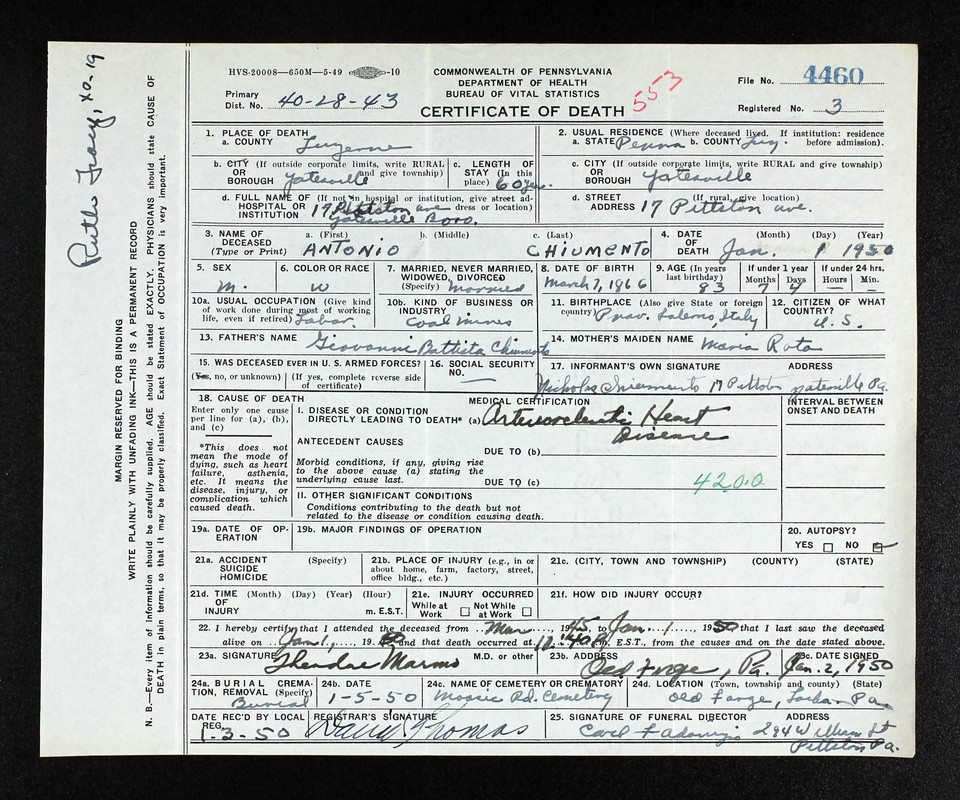 HVS-20008—650M—5-49 -10
COMMONWEALTH OF PENNSYLVANIA
DEPARTMENT OF HEALTH
BUREAU OF VITAL STATISTICS
CERTIFICATE OF DEATH
553
File No. 4460
Primary Dist. No. 40-28-43
Registered No. 3
1. PLACE OF DEATH
a. COUNTY Luzerne
2. USUAL RESIDENCE (Where deceased lived. If institution: residence before admission).
a. STATE Penna b. COUNTY Luz.
b. CITY (If outside corporate limits, write RURAL and give township) OR BOROUGH Yatesville
c. LENGTH OF STAY (In this place) 60 yrs.
c. CITY (If outside corporate limits, write RURAL and give township) OR BOROUGH Yatesville
d. FULL NAME OF (If not in hospital or institution, give street address or location) HOSPITAL OR INSTITUTION 17 Pittston ave
Yatesville Boro.
d. STREET ADDRESS (If rural, give location) 17 Pittston ave.
3. NAME OF DECEASED (Type or Print) a. (First) b. (Middle) c. (Last)
ANTONIO CHIUMENTO
4. DATE OF DEATH (Month) (Day) (Year)
Jan. 1 1950
5. SEX M.
6. COLOR OR RACE W
7. MARRIED, NEVER MARRIED, WIDOWED, DIVORCED (Specify) Married
8. DATE OF BIRTH March 7, 1866
9. AGE (In years last birthday) 83
If under 1 year Months Days
If under 24 hrs. Hours Min.
— —
10a. USUAL OCCUPATION (Give kind of work done during most of working life, even if retired) Labor.
10b. KIND OF BUSINESS OR INDUSTRY Coal mines
11. BIRTHPLACE (Also give State or foreign country) Prov. Salerno, Italy
12. CITIZEN OF WHAT COUNTRY? U.S.
13. FATHER'S NAME Giovanni Battista Chiumento
14. MOTHER'S MAIDEN NAME Maria Rota
15. WAS DECEASED EVER IN U. S. ARMED FORCES?
(Yes, no, or unknown) (If yes, complete reverse side of certificate)
16. SOCIAL SECURITY NO. —
17. INFORMANT'S OWN SIGNATURE ADDRESS
Nicholas 17 Pittston Yatesville Pa.
18. CAUSE OF DEATH
Enter only one cause per line for (a), (b), and (c)
*This does not mean the mode of dying, such as heart failure, asthenia, etc. It means the disease, injury, or complication which caused death.
MEDICAL CERTIFICATION
INTERVAL BETWEEN ONSET AND DEATH
I. DISEASE OR CONDITION DIRECTLY LEADING TO DEATH* (a) Arteriosclerotic Heart
Disease
ANTECEDENT CAUSES
DUE TO (b)
Morbid conditions, if any, giving rise to the above cause (a) stating the underlying cause last.
DUE TO (c)
420.0
II. OTHER SIGNIFICANT CONDITIONS
Conditions contributing to the death but not related to the disease or condition causing death.
19a. DATE OF OPERATION
19b. MAJOR FINDINGS OF OPERATION
20. AUTOPSY?
YES NO
21a. ACCIDENT SUICIDE HOMICIDE (Specify)
21b. PLACE OF INJURY (e.g., in or about home, farm, factory, street, office bldg., etc.)
21c. (CITY, TOWN AND TOWNSHIP) (COUNTY) (STATE)
21d. TIME OF INJURY (Month) (Day) (Year) (Hour) m. E.S.T.
21e. INJURY OCCURRED
While at Work Not While at Work
21f. HOW DID INJURY OCCUR?
22. I hereby certify that I attended the deceased from Mar., 1945, to Jan. 1, 1950 that I last saw the deceased
alive on Jan 1, 19 50 and that death occurred at 12:40 P m. EST., from the causes and on the date stated above.
23a. SIGNATURE Theodore Marmo M.D. or other
23b. ADDRESS Old Forge, Pa.
23c. DATE SIGNED Jan. 2, 1950
24a. BURIAL CREMATION, REMOVAL (Specify) Burial
24b. DATE 1-5-50
24c. NAME OF CEMETERY OR CREMATORY Moosic Rd. Cemetery
24d. LOCATION (Town, township and county) (State) Old Forge, Lacka. Pa
DATE REC'D BY LOCAL REG. 1-3-50
REGISTRAR'S SIGNATURE David Thomas
25. SIGNATURE OF FUNERAL DIRECTOR ADDRESS
Carl 294 William St
Pittston Pa.
MARGIN RESERVED FOR BINDING
WRITE PLAINLY WITH UNFADING INK—THIS IS A PERMANENT RECORD
N. B.—Every item of information should be carefully supplied. AGE should be stated EXACTLY. PHYSICIANS should state CAUSE OF
DEATH in plain terms, so that it may be properly classified. Exact Statement of OCCUPATION is very important.